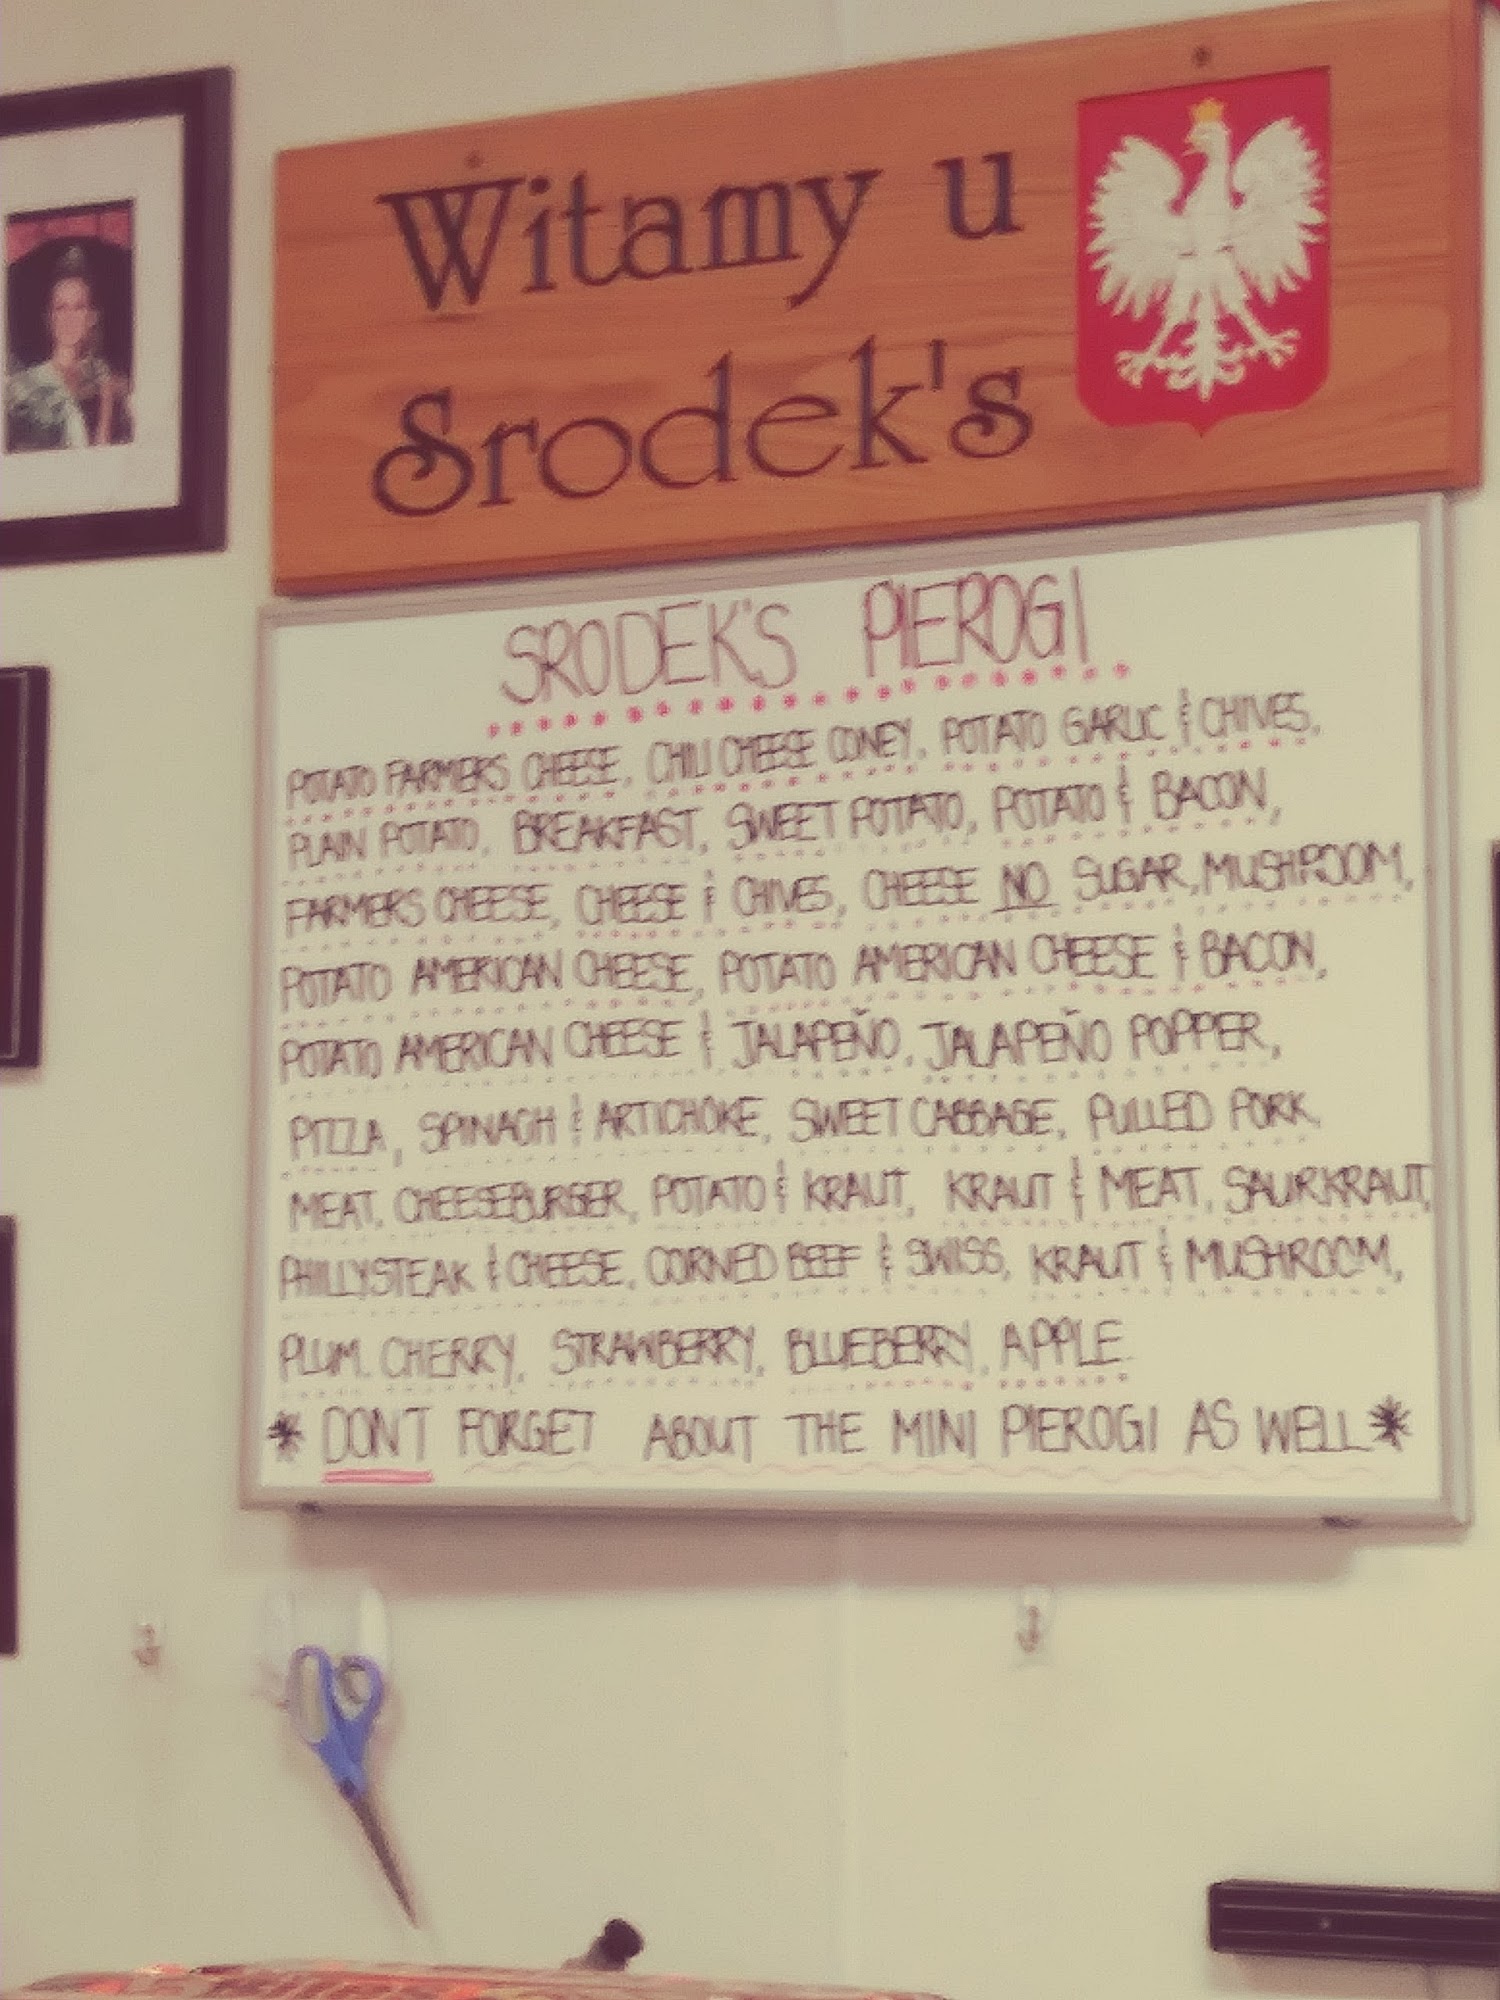 Witamy u
Srodek's
SRODEK'S PIEROGI
POTATO FARMERS CHEESE, CHILI CHEESE CONEY, POTATO GARLIC & CHIVES,
PLAIN POTATO, BREAKFAST, SWEET POTATO, POTATO & BACON,
FARMERS CHEESE, CHEESE & CHIVES, CHEESE NO SUGAR, MUSHROOM,
POTATO AMERICAN CHEESE, POTATO AMERICAN CHEESE & BACON,
POTATO AMERICAN CHEESE & JALAPEÑO, JALAPEÑO POPPER,
PIZZA, SPINACH & ARTICHOKE, SWEET CABBAGE, PULLED PORK,
MEAT, CHEESEBURGER, POTATO & KRAUT, KRAUT & MEAT, SAURKRAUT,
PHILLYSTEAK & CHEESE, CORNED BEEF & SWISS, KRAUT & MUSHROOM,
PLUM, CHERRY, STRAWBERRY, BLUEBERRY, APPLE
* DON'T FORGET ABOUT THE MINI PIEROGI AS WELL *